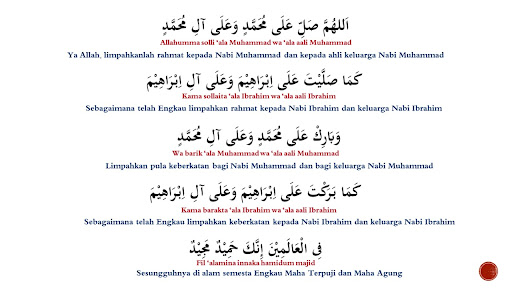 اَللهُمَّ صَلِّ عَلَى مُحَمَّدٍ وَعَلَى آلِ مُحَمَّدٍ
Allahumma solli 'ala Muhammad wa 'ala aali Muhammad
Ya Allah, limpahkanlah rahmat kepada Nabi Muhammad dan kepada ahli keluarga Nabi Muhammad
كَمَا صَلَّيْتَ عَلَى اِبْرَاهِيْمَ وَعَلَى آلِ اِبْرَاهِيْمَ
Kama sollaita 'ala Ibrahim wa 'ala aali Ibrahim
Sebagaimana telah Engkau limpahkan rahmat kepada Nabi Ibrahim dan keluarga Nabi Ibrahim
وَبَارِكْ عَلَى مُحَمَّدٍ وَعَلَى آلِ مُحَمَّدٍ
Wa barik 'ala Muhammad wa 'ala aali Muhammad
Limpahkan pula keberkatan bagi Nabi Muhammad dan bagi keluarga Nabi Muhammad
كَمَا بَرَكْتَ عَلَى اِبْرَاهِيْمَ وَعَلَى آلِ اِبْرَاهِيْمَ
Kama barakta 'ala Ibrahim wa 'ala aali Ibrahim
Sebagaimana telah Engkau limpahkan keberkatan kepada Nabi Ibrahim dan keluarga Nabi Ibrahim
فِى الْعَالَمِيْنَ اِنَّكَ حَمِيْدٌ مَجِيْدٌ
Fil 'alamina innaka hamidum majid
Sesungguhnya di alam semesta Engkau Maha Terpuji dan Maha Agung